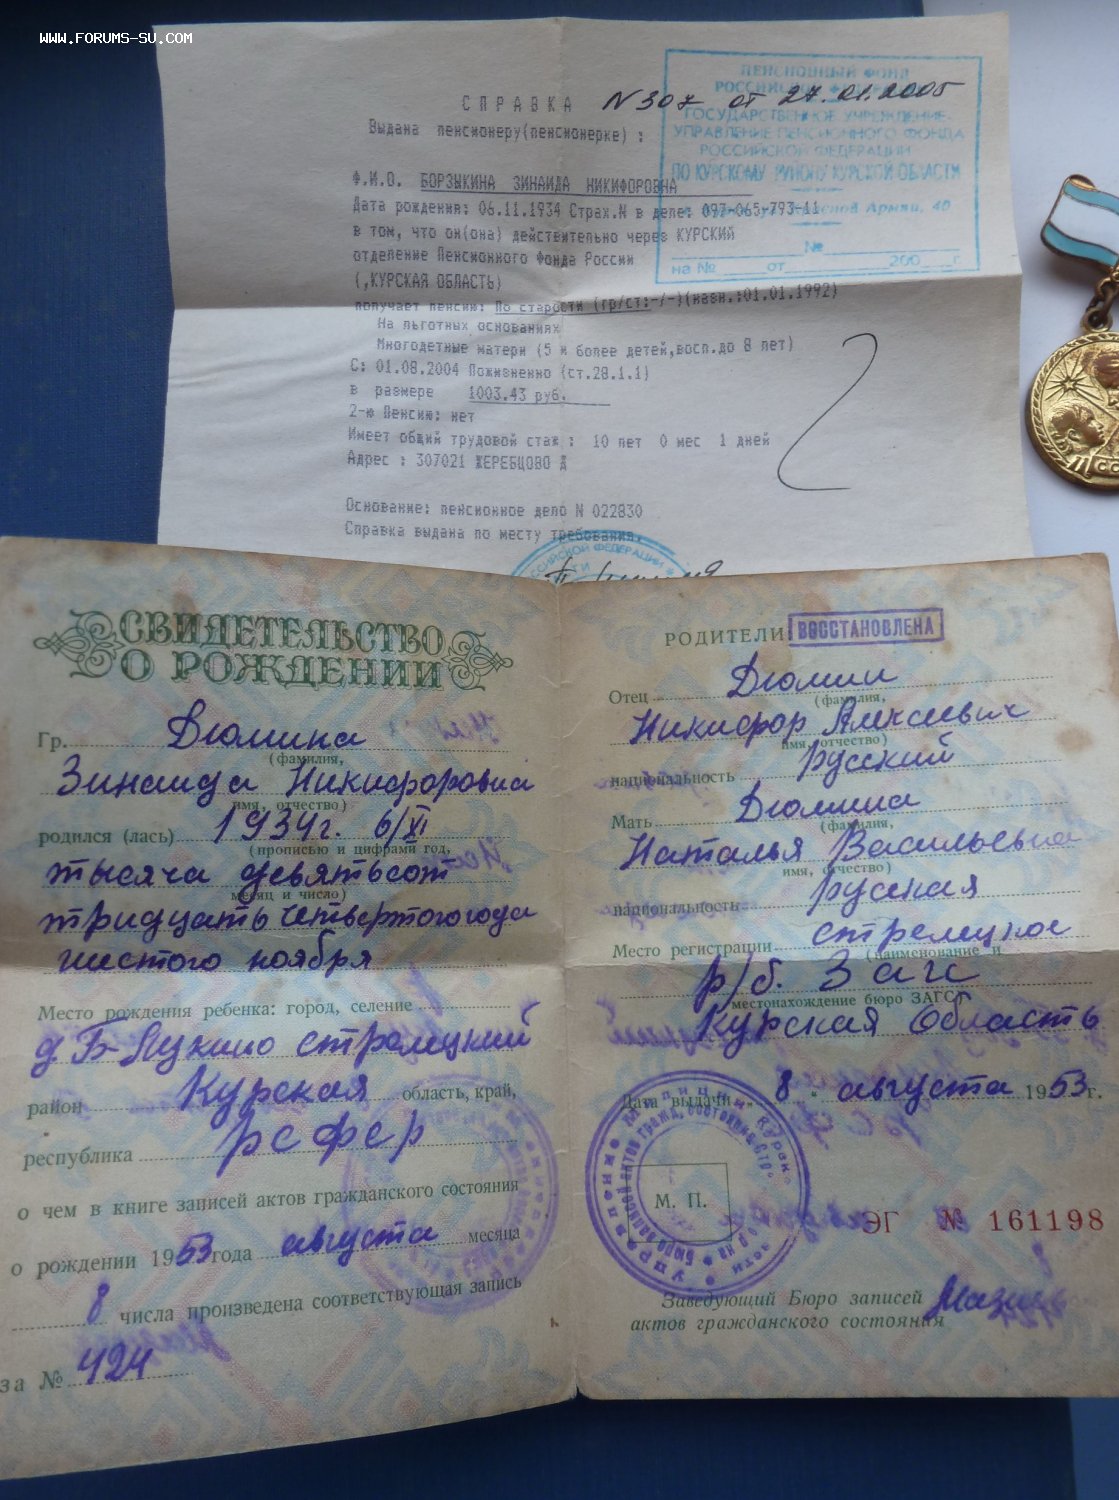 WWW.FORUMS-SU.COM
СПРАВКА N 307 от 27.01.2005
Выдана пенсионеру(пенсионерке) :
Ф.И.О. БОРЗЫКИНА ЗИНАИДА НИКИФОРОВНА
Дата рождения: 06.11.1934 Страх.N в деле: 097-065-793-11
в том, что он(она) действительно через КУРСКИЙ
отделение Пенсионного Фонда России
(,КУРСКАЯ ОБЛАСТЬ)
получает пенсию: По старости (гр/ст:-/-)(назн.:01.01.1992)
На льготных основаниях
Многодетные матери (5 и более детей,восп.до 8 лет)
С: 01.08.2004 Пожизненно (ст.28.1.1)
в размере 1003.43 руб.
2-ю Пенсию: нет
Имеет общий трудовой стаж : 10 лет 0 мес 1 дней
Адрес : 307021 ЖЕРЕБЦОВО Д
Основание: пенсионное дело N 022830
Справка выдана по месту требования.
ПЕНСИОННЫЙ ФОНД
РОССИЙСКОЙ
ГОСУДАРСТВЕННОЕ УЧРЕЖДЕНИЕ-
УПРАВЛЕНИЕ ПЕНСИОННОГО ФОНДА
РОССИЙСКОЙ ФЕДЕРАЦИИ
ПО КУРСКОМУ РАЙОНУ КУРСКОЙ ОБЛАСТИ
Красной Армии, 40
№
на № от 200 г.
РОССИЙСКОЙ ФЕДЕРАЦИИ
СВИДЕТЕЛЬСТВО
О РОЖДЕНИИ
Гр. Дюмина
(фамилия,
Зинаида Никифоровна
имя, отчество)
родился (лась) 1934г. 6/XI
(прописью и цифрами год,
тысяча девятьсот
месяц и число)
тридцать четвертого года
шестого ноября
Место рождения ребенка: город, селение
д. Б-Лукино стрелецкий
район Курская область, край,
республика РСФСР
о чем в книге записей актов гражданского состояния
о рождении 1953 года августа месяца
8 числа произведена соответствующая запись
за № 424
РОДИТЕЛИ ВОССТАНОВЛЕНА
Отец Дюмин
(фамилия,
Никифор Алексеевич
имя, отчество)
национальность русский
Мать Дюмина
(фамилия,
Наталья Васильевна
имя, отчество)
национальность русская
Место регистрации стрелецкое
(наименование и
р/б. Загс
местонахождение бюро ЗАГС)
Курская область
Дата выдачи „8“ августа 1953 г.
М. П.
ЭГ № 161198
Заведующий Бюро записей
актов гражданского состояния